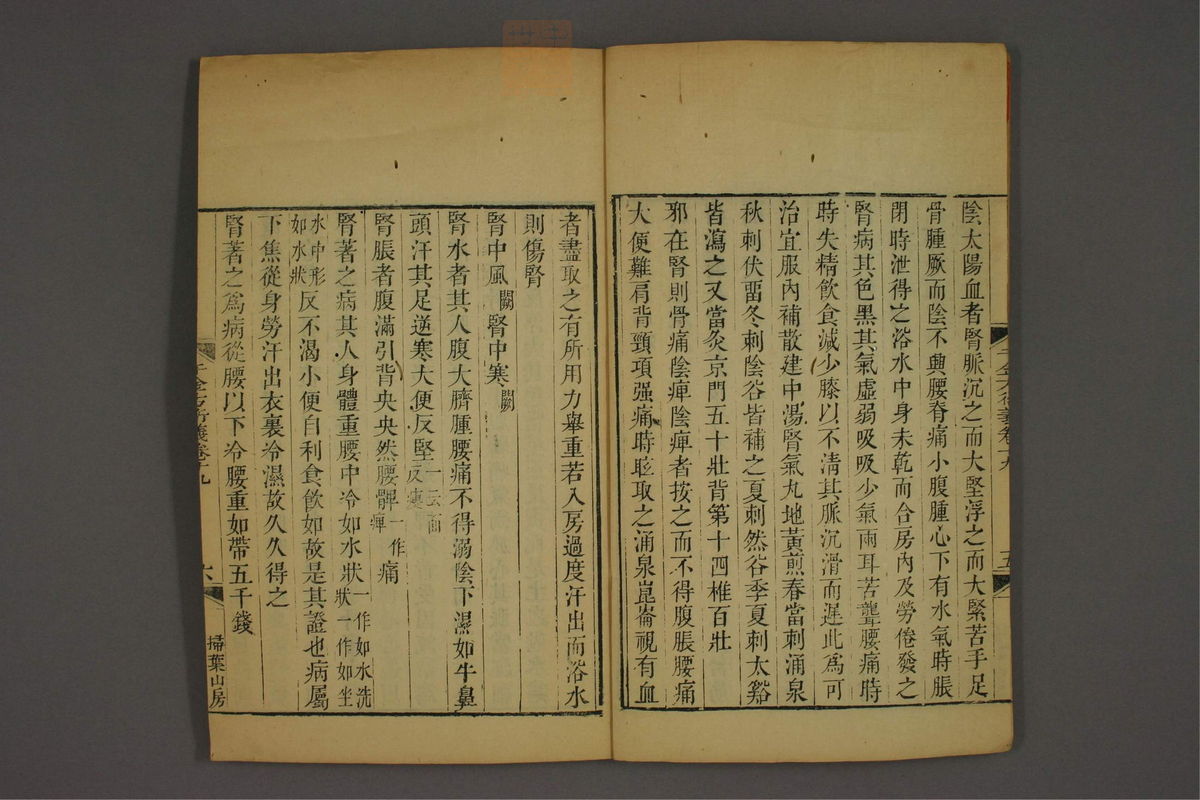 陰太陽血者腎脈沉之而大堅浮之而大緊苦手足
骨腫厥而陰不興腰脊痛小腹腫心下有水氣時脹
閉時泄得之浴水中身未乾而合房內及勞倦發之
腎病其色黑其氣虛弱吸吸少氣兩耳苦聾腰痛時
時失精飲食減少膝以下清其脈沉滑而遲此為可
治宜服內補散建中湯腎氣丸地黃煎春當刺涌泉
秋刺伏畱冬刺陰谷皆補之夏刺然谷季夏刺太谿
皆瀉之又當灸京門五十壯背第十四椎百壯
邪在腎則骨痛陰痺陰痺者按之而不得腹脹腰痛
大便難肩背頸項强痛時眩取之涌泉崑崙視有血
千金方衍義卷十九
五
者盡取之有所用力舉重若入房過度汗出而浴水
則傷腎
腎中風闕腎中寒闕
腎水者其人腹大臍腫腰痛不得溺陰下濕如牛鼻
頭汗其足逆寒大便反堅一云面反瘦
腎脹者腹滿引背央央然腰髀一作痺痛
腎著之病其人身體重腰中冷如水狀一作如水洗狀一作如坐
水中形如水狀反不渴小便自利食飲如故是其證也病屬
下焦從身勞汗出衣裏冷濕故久久得之
腎著之為病從腰以下冷腰重如帶五千錢
千金方衍義卷十九
六
掃葉山房